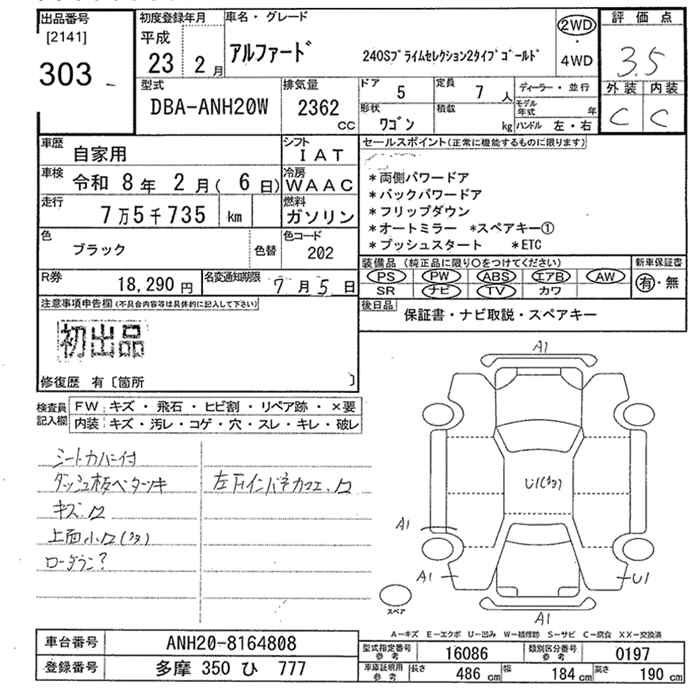 出品番号
[2141]
303
初度登録年月
平成
23 2月
車名・グレード
アルファード
240Sプライムセレクション2タイプゴールド
2WD
・
4WD
評価点
3.5
外装 内装
C C
型式
DBA-ANH20W
排気量
2362
CC
ドア
5
定員
7 人
ディーラー・並行
形状
ワゴン
積載
kg
モデル年式 年
ハンドル 左・右
車歴
自家用
シフト
IAT
車検
令和 8年 2月( 6日)
冷房
WAAC
走行
7万5千735 km
燃料
ガソリン
色
ブラック
色替
色コード
202
R券
18,290 円
名変通知期限
7月5日
セールスポイント(正常に機能するものに限ります)
*両側パワードア
*バックパワードア
*フリップダウン
*オートミラー *スペアキー①
*プッシュスタート *ETC
装備品(純正品に限り○をつけてください)
PS PW ABS エアB AW
SR ナビ TV カワ
新車保証書
有・無
後日品
保証書・ナビ取説・スペアキー
注意事項申告欄(不具合内容等は具体的に記入して下さい)
初出品
修復歴 有〔箇所 〕
検査員記入欄
FW キズ・飛石・ヒビ割・リペア跡・×要
内装 キズ・汚レ・コゲ・穴・スレ・キレ・破レ
シートカバー付
ダッシュ板ベタツキ
キズ
左下インパネカフェ
A1
U1
A1
A1
U1
A1
スペア
A-キズ E-エクボ U-凹み W-補修跡 S-サビ C-腐食 XX-交換済
車台番号
ANH20-8164808
登録番号
多摩 350 ひ 777
型式指定番号
参考
16086
類別区分番号
参考
0197
車庫証明用
参考
長さ
486 cm
幅
184 cm
高さ
190 cm